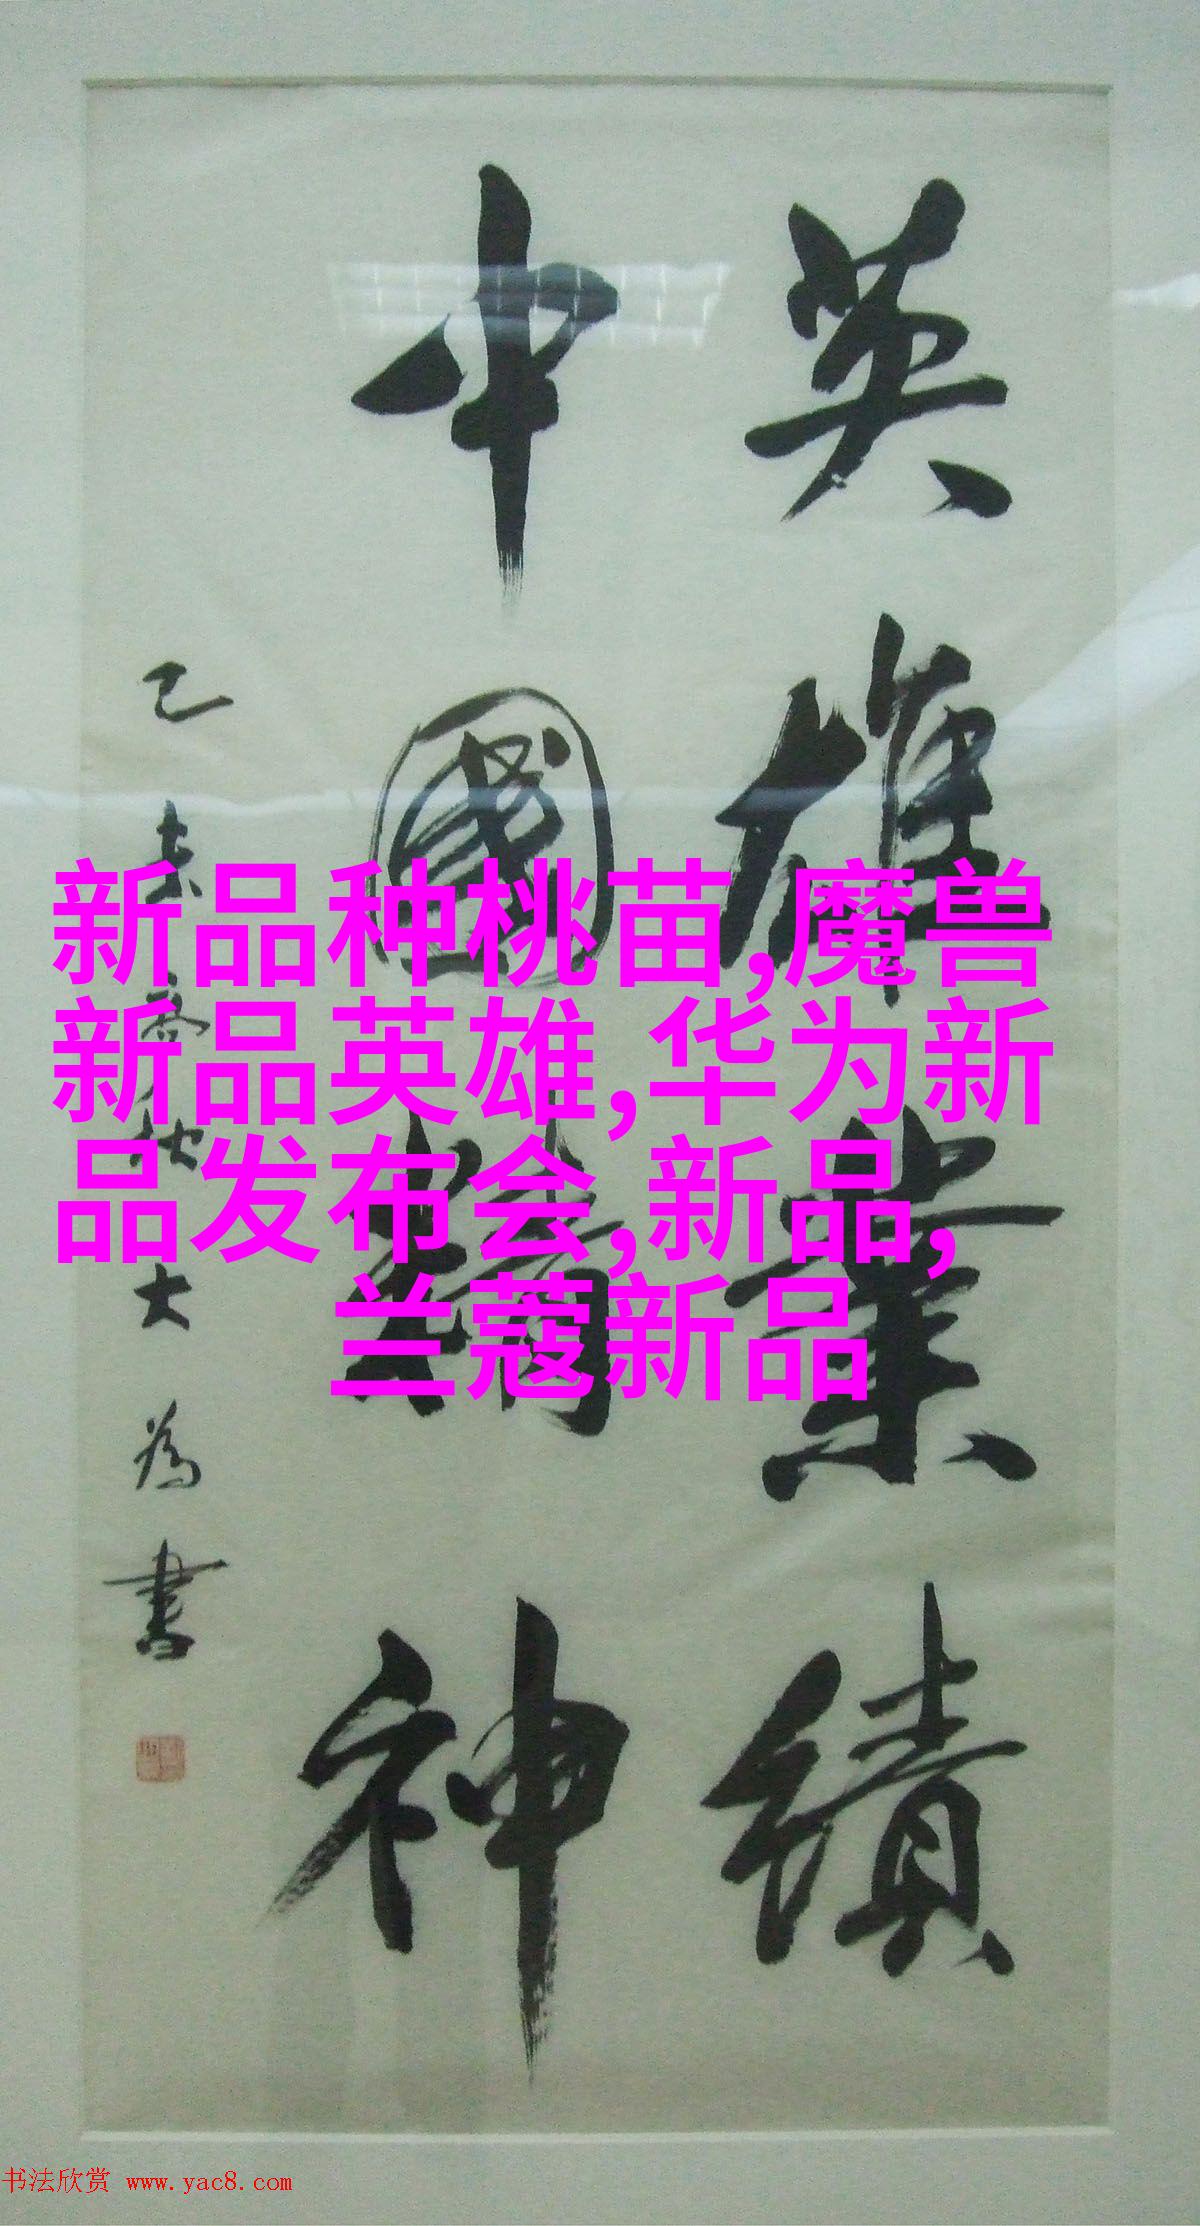 英雄業績
中國精神
乙未喬秋大為書
新品种桃苗,魔兽
新品英雄,华为新
品发布会,新品,
兰蔻新品
书法欣赏 www.yac8.com